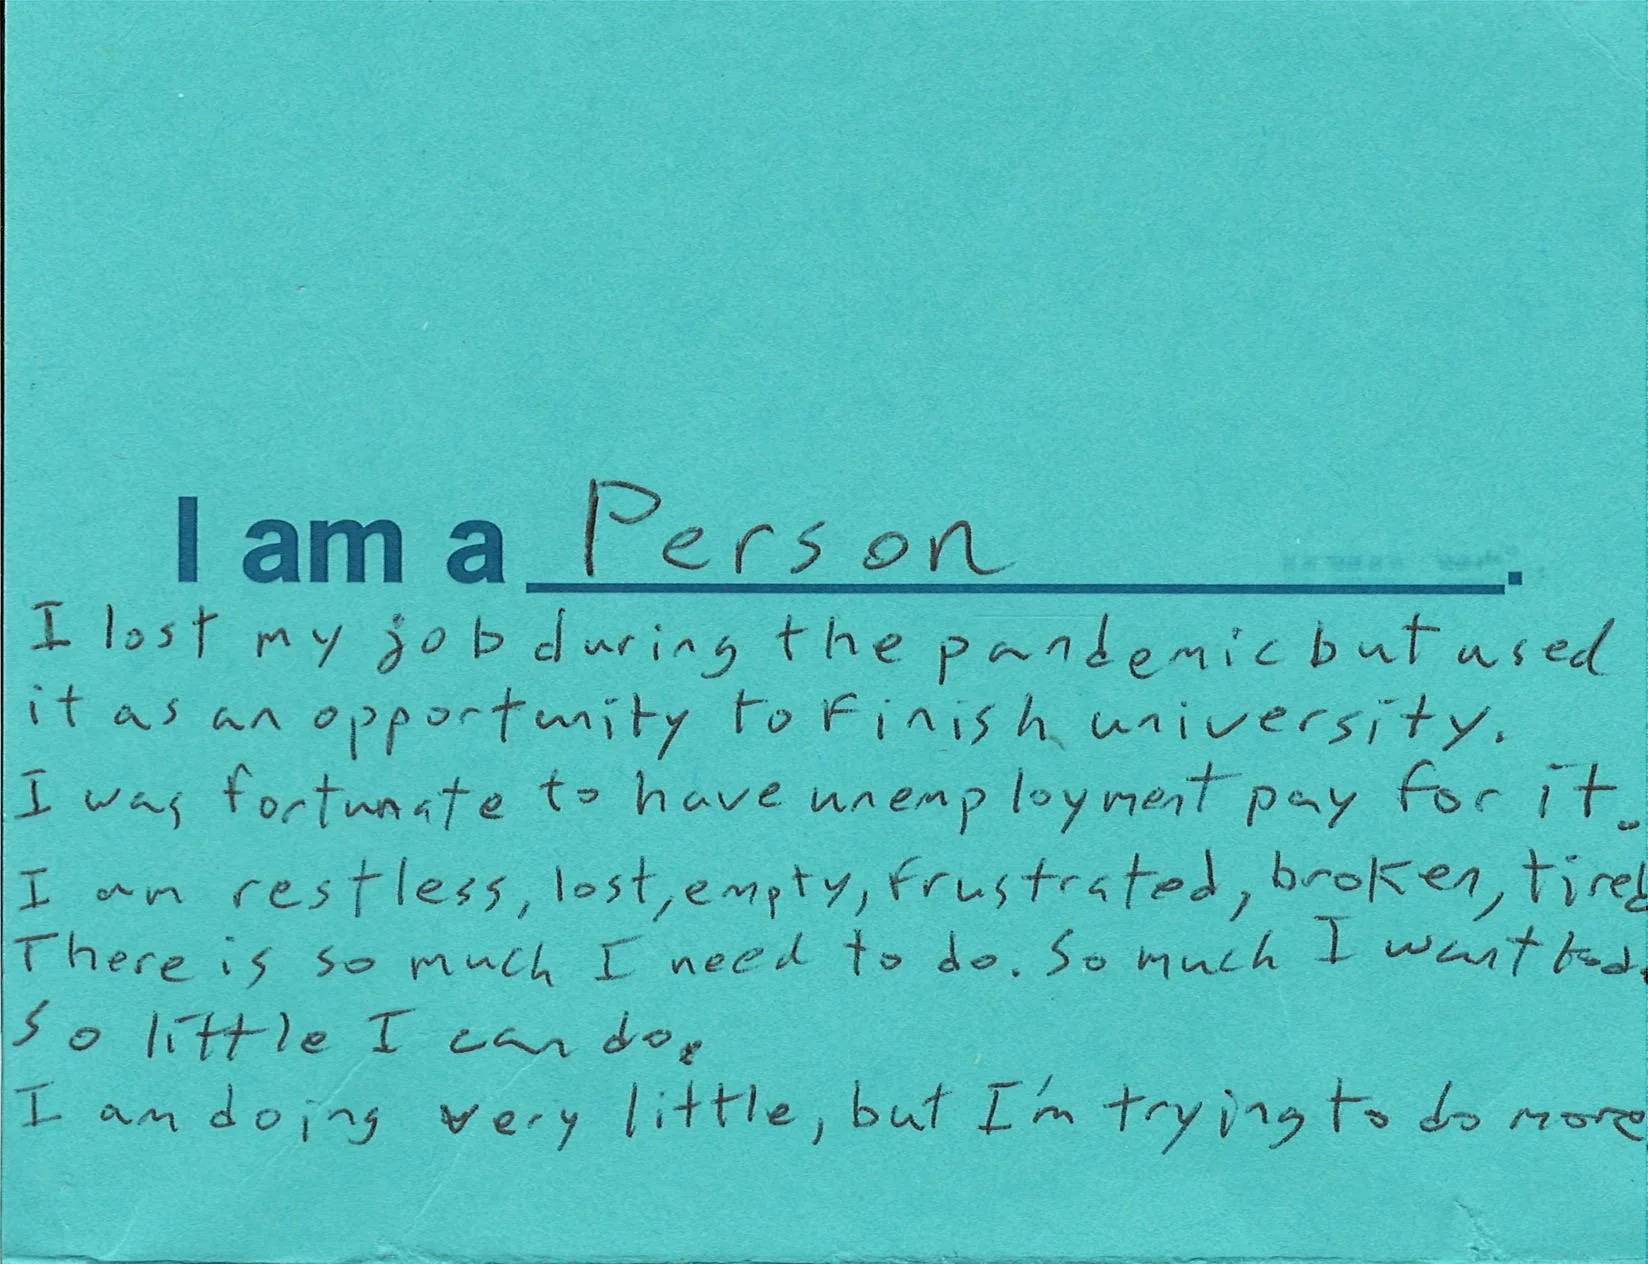 I am a Person.
I lost my job during the pandemic but used
it as an opportunity to finish university.
I was fortunate to have unemployment pay for it.
I am restless, lost, empty, frustrated, broken, tired
There is so much I need to do. So much I want to do.
So little I can do.
I am doing very little, but I'm trying to do more